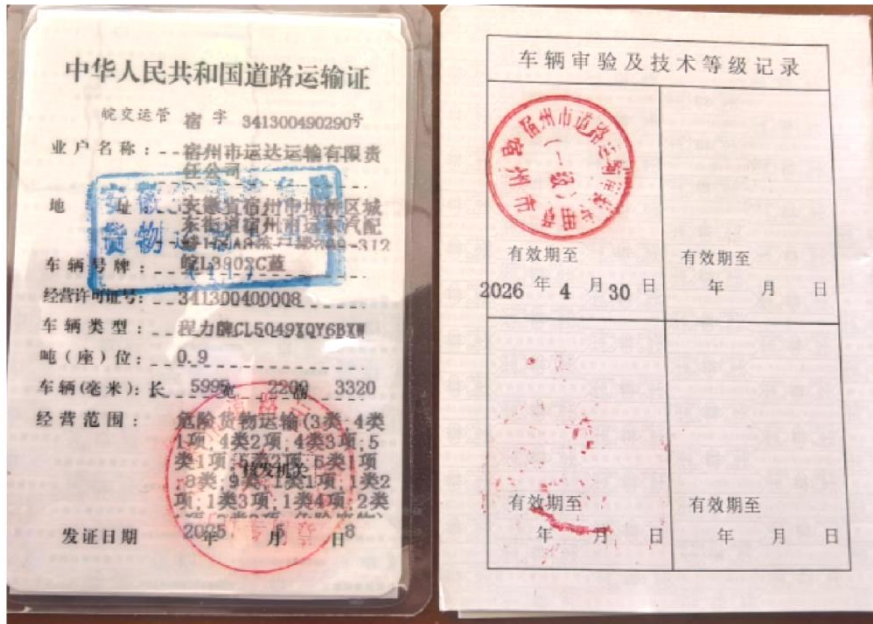 中华人民共和国道路运输证
皖交运管 宿 字 341300490290号
业户名称: 宿州市运达运输有限责
任公司
地 址 安徽省宿州市埇桥区城
东街道宿州市运来汽配
312
车辆号牌: 皖L3903C蓝
经营许可证号: 341300400008
车辆类型: 程力牌CL5049XQY6BYW
吨(座)位: 0.9
车辆(毫米): 长 5995 宽 2200 高 3320
经营范围: 危险货物运输(3类,4类
1项,4类2项,4类3项,5
类1项,5类2项,6类1项
,8类,9类,1类1项,1类2
项,1类3项,1类4项,2类
核发机关
发证日期 2025 年 月 8 日
车辆审验及技术等级记录
宿州市道路运输
(一级)
有效期至
2026 年 4 月 30 日
有效期至
年 月 日
有效期至
年 月 日
有效期至
年 月 日